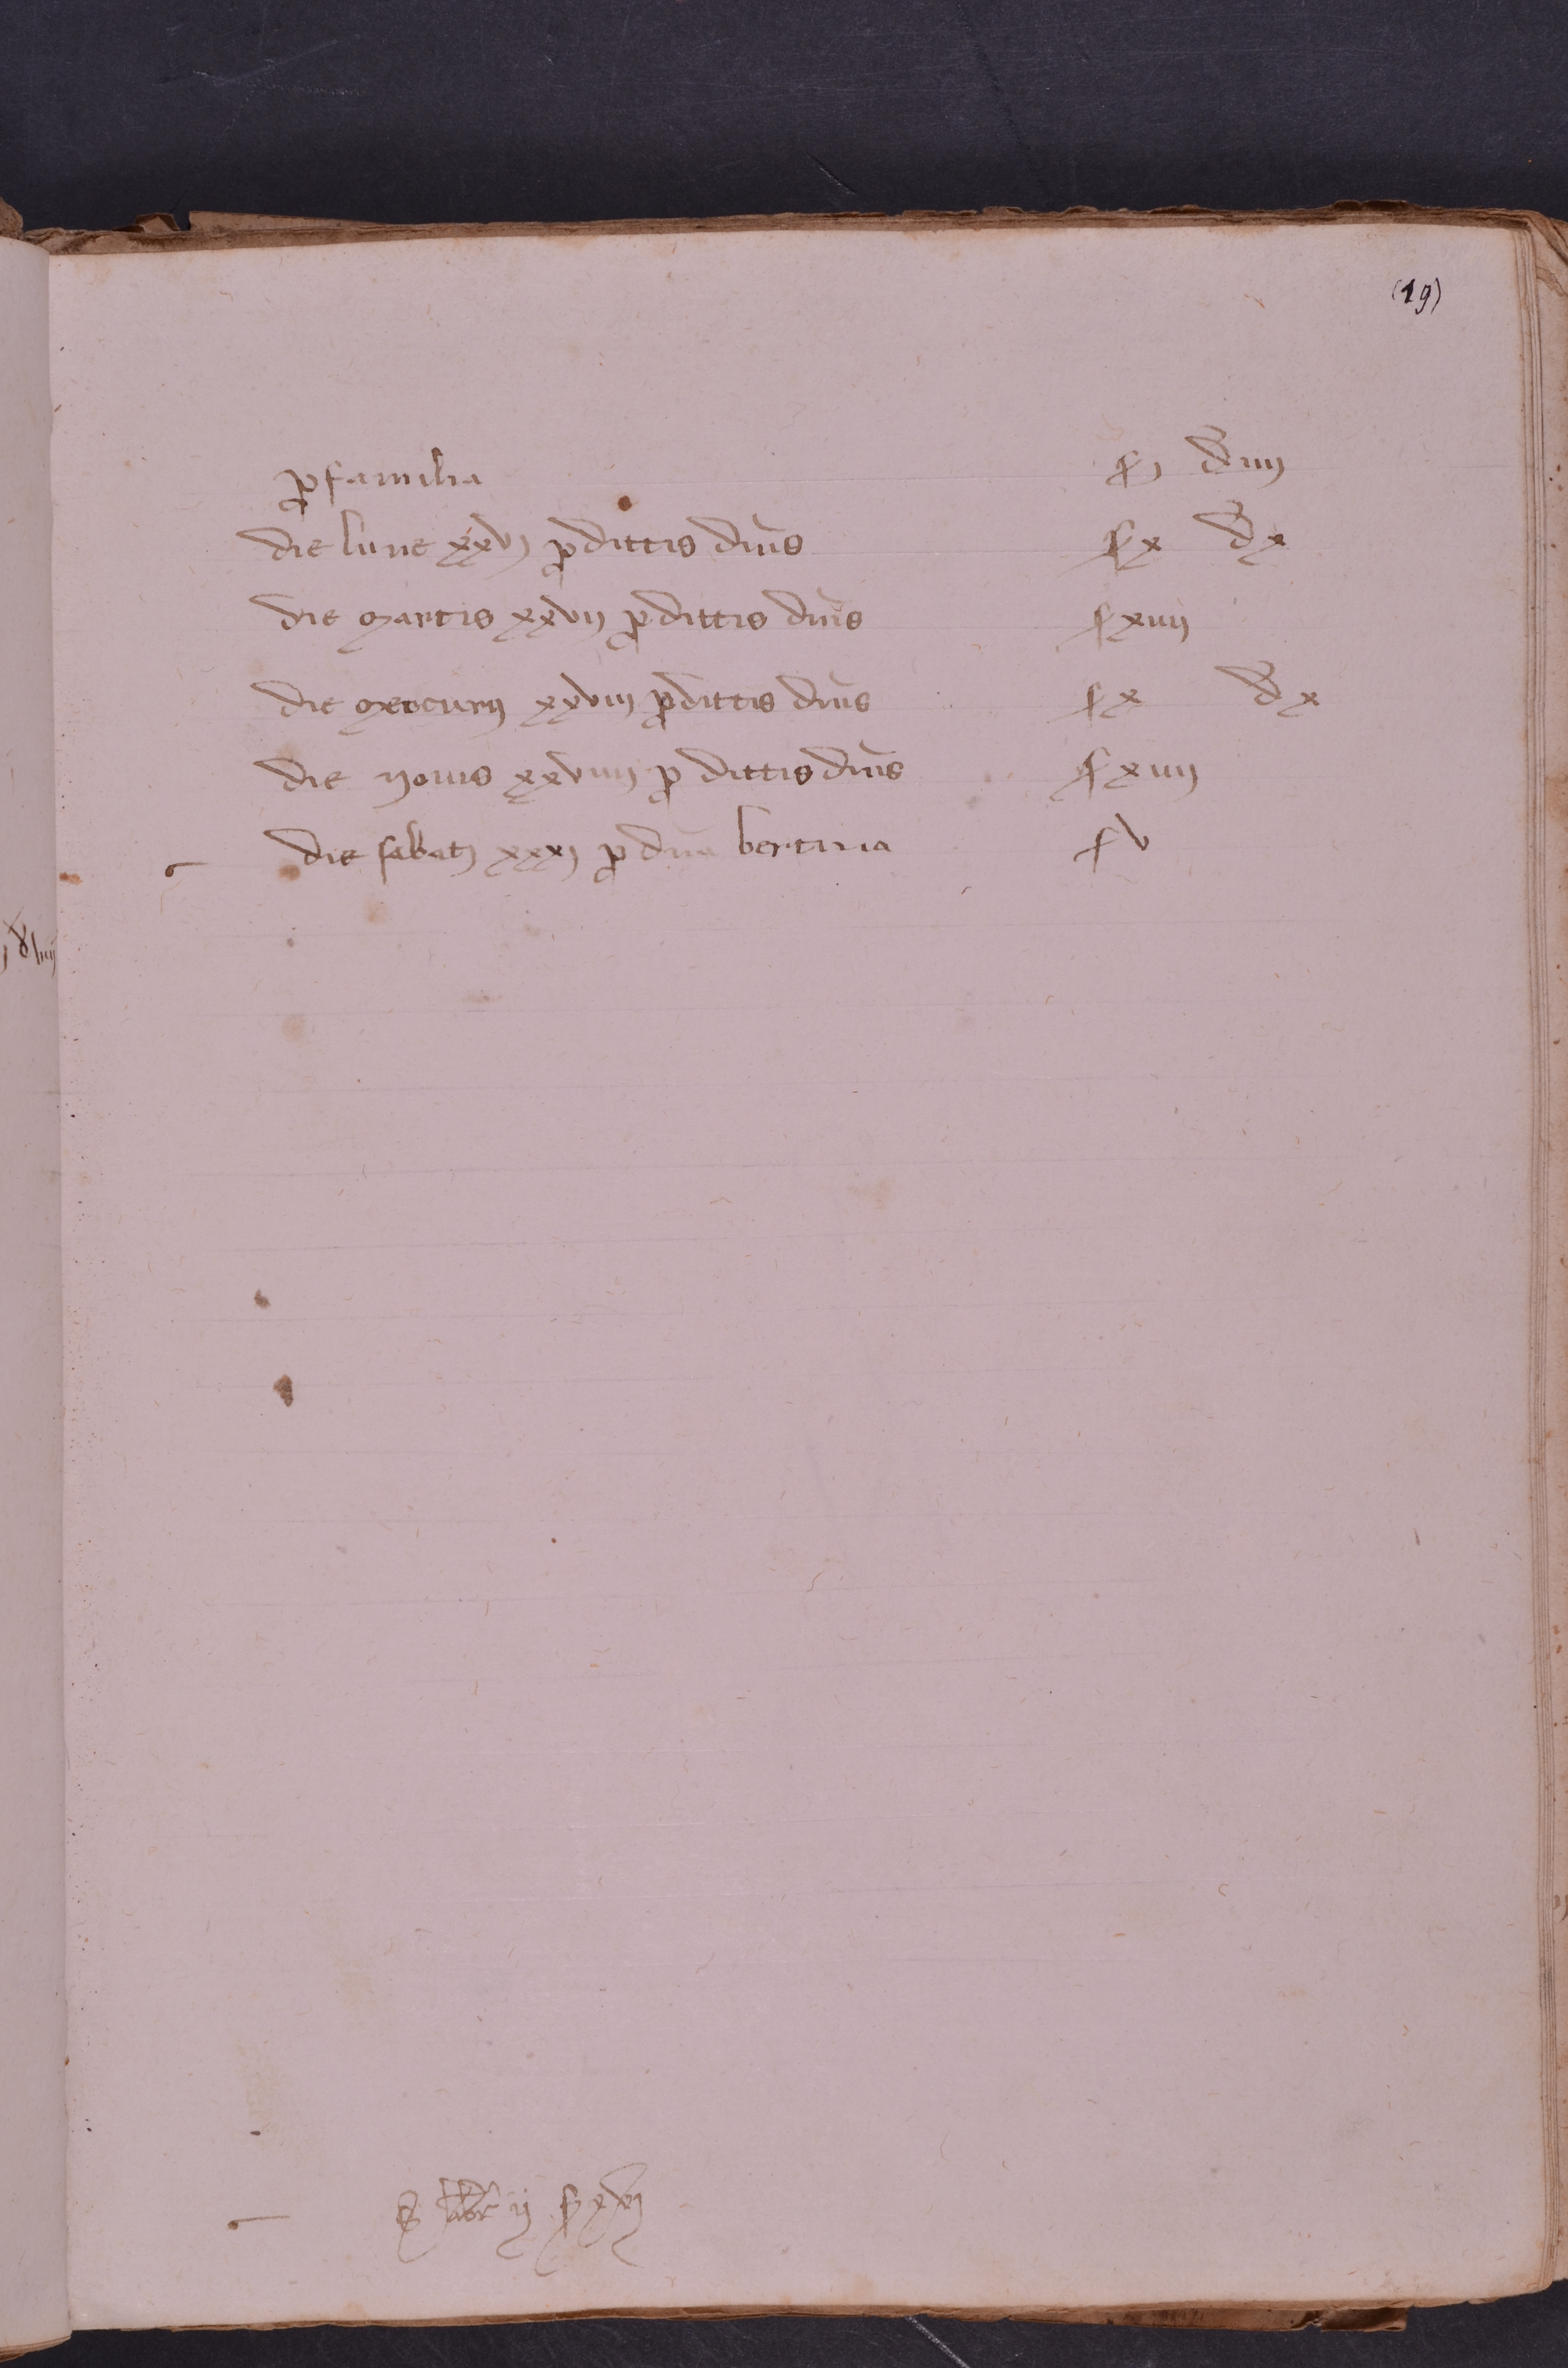 (19)
ꝓ familia s j đ iiij
die lune xxvj ꝓ dittis dnis s x đ x
die martis xxvij ꝓ dittis dnis s xiiij
die mercurij xxviij ꝓ dittis dnis s x đ x
die yovis xxviiij ꝓ dittis dnis s xiiij
die sabatj xxxj ꝓ dna bertina s v
S libr ij s xvj